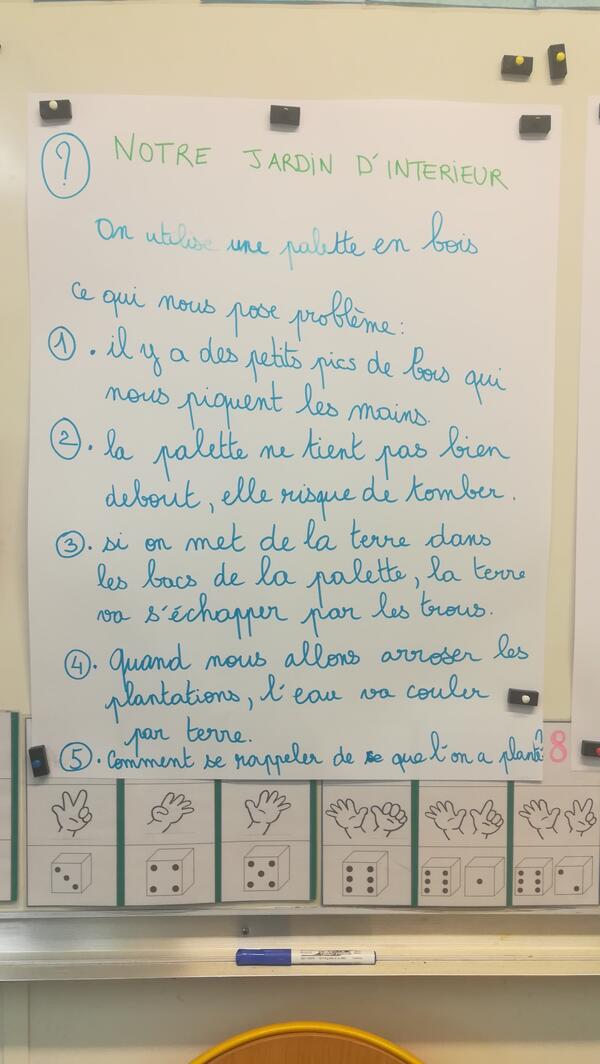 ?
NOTRE JARDIN D'INTERIEUR
On utilise une palette en bois
Ce qui nous pose problème :
1. il y a des petits pics de bois qui
nous piquent les mains.
2. la palette ne tient pas bien
debout, elle risque de tomber.
3. si on met de la terre dans
les bacs de la palette, la terre
va s'échapper par les trous.
4. Quand nous allons arroser les
plantations, l'eau va couler
par terre.
5. Comment se rappeler de se que l'on a planté?
8